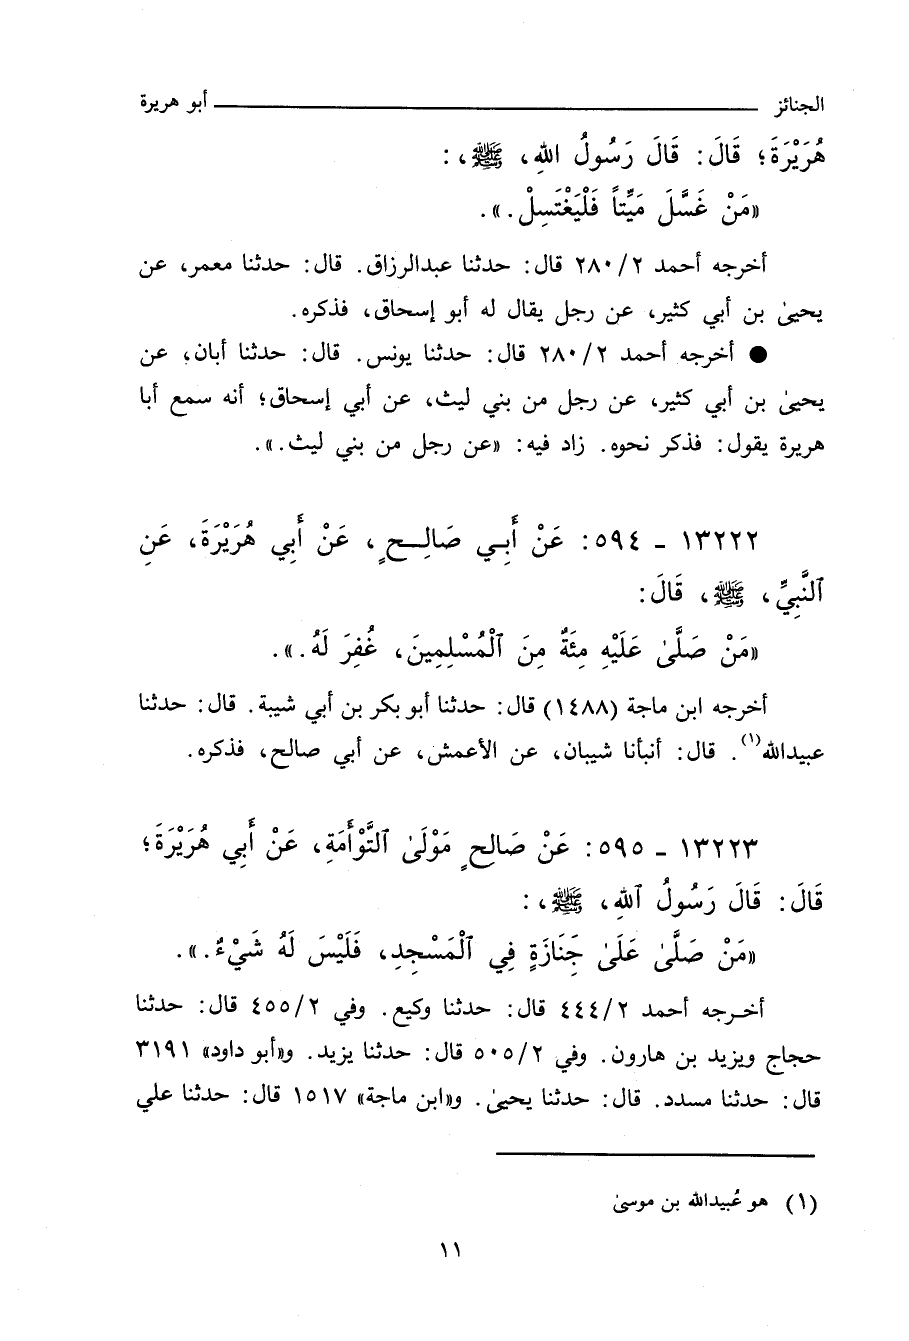 الجنائز ــــــــــــــــــــــــــــــــــــــــ أبو هريرة
هُرَيْرَةَ؛ قَالَ: قَالَ رَسُولُ اللهِ، ﷺ،:
«مَنْ غَسَّلَ مَيِّتاً فَلْيَغْتَسِلْ.».
أخرجه أحمد ٢/ ٢٨٠ قال: حدثنا عبدالرزاق. قال: حدثنا معمر، عن
يحيىٰ بن أبي كثير، عن رجل يقال له أبو إسحاق، فذكره.
● أخرجه أحمد ٢/ ٢٨٠ قال: حدثنا يونس. قال: حدثنا أبان، عن
يحيىٰ بن أبي كثير، عن رجل من بني ليث، عن أبي إسحاق؛ أنه سمع أبا
هريرة يقول: فذكر نحوه. زاد فيه: «عن رجل من بني ليث.».
١٣٢٢٢ ـ ٥٩٤: عَنْ أَبِي صَالِحٍ، عَنْ أَبِي هُرَيْرَةَ، عَنِ
ٱلنَّبِيِّ، ﷺ، قَالَ:
«مَنْ صَلَّىٰ عَلَيْهِ مِئَةٌ مِنَ ٱلْمُسْلِمِينَ، غُفِرَ لَهُ.».
أخرجه ابن ماجة (١٤٨٨) قال: حدثنا أبو بكر بن أبي شيبة. قال: حدثنا
عبيدالله(١). قال: أنبأنا شيبان، عن الأعمش، عن أبي صالح، فذكره.
١٣٢٢٣ ـ ٥٩٥: عَنْ صَالِحٍ مَوْلَىٰ ٱلتَّوْأَمَةِ، عَنْ أَبِي هُرَيْرَةَ؛
قَالَ: قَالَ رَسُولُ ٱللهِ، ﷺ،:
«مَنْ صَلَّىٰ عَلَىٰ جَنَازَةٍ فِي ٱلْمَسْجِدِ، فَلَيْسَ لَهُ شَيْءٌ.».
أخرجه أحمد ٢/ ٤٤٤ قال: حدثنا وكيع. وفي ٢/ ٤٥٥ قال: حدثنا
حجاج ويزيد بن هارون. وفي ٢/ ٥٠٥ قال: حدثنا يزيد. و«أبو داود» ٣١٩١
قال: حدثنا مسدد. قال: حدثنا يحيىٰ. و«ابن ماجة» ١٥١٧ قال: حدثنا علي
(١) هو عُبيدالله بن موسىٰ
١١